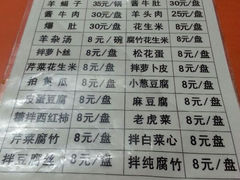 羊蝎子 35元/锅 酱牛肉 30元/盘
酱牛肉 30元/盘 羊头肉 25元/盘
爆肚 30元/盘 花生米 8元/盘
羊杂汤 8元/碗 腐竹花生米 8元/盘
拌萝卜丝 8元/盘 松花蛋 8元/盘
芹菜花生米 8元/盘 拌萝卜皮 8元/盘
拍黄瓜 8元/盘 小葱豆腐 8元/盘
皮蛋豆腐 8元/盘 麻豆腐 8元/盘
糖拌西红柿 8元/盘 老虎菜 8元/盘
芹菜腐竹 8元/盘 拌白菜心 8元/盘
拌豆腐丝 8元/盘 拌纯腐竹 8元/盘